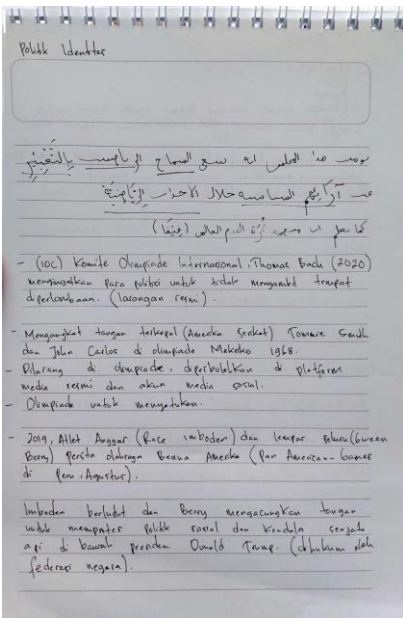 Politik Identitas
يومن هذا المجلس انه سعى السماح الرياضيين بِالتَّعْبِيْرِ
عن آرَائِهِمُ السياسية خلال الاحداث الرِّيَاضِيَّةِ
كرة القدم العالمى (فِيْفَا)
- (IOC) Komite Olimpiade Internasional, Thomas Bach (2020)
mengingatkan para politisi untuk tidak mengambil tempat
diperlombaan. (larangan resmi).
- Mengangkat tangan terkepal (Amerika Serikat) Tommie Smith
dan John Carlos di olimpiade Meksiko 1968.
- Dilarang di olimpiade, diperbolehkan di platform
media resmi dan akun media sosial.
- Olimpiade untuk menyatukan.
- 2019, Atlet Anggar (Race imboden) dan lempar peluru (Gween
Berry) pesta olahraga Benua Amerika (Pan American-Games
di Peru, Agustus).
Imboden berlutut dan Berry mengacungkan tangan
untuk memprotes politik rasial dan kendala senjata
api di bawah presiden Donald Trump. (dihukum oleh
federasi negara).